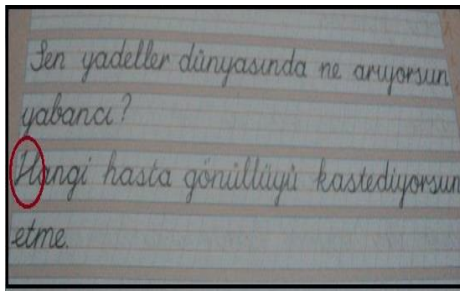 Sen yadeller dünyasında ne arıyorsun
yabancı?
Hangi hasta gönüllüyü kastediyorsun
etme.